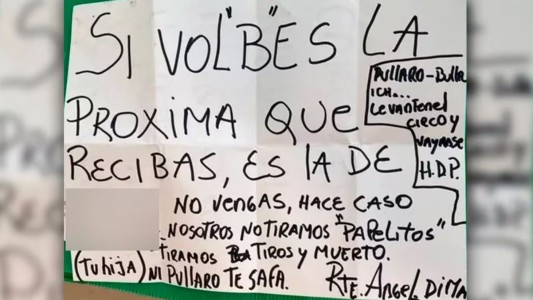 SI VOL"B"ES LA
PROXIMA QUE
RECIBAS, ES LA DE
PULLARO-Bulla
ICH...
Levanten el
CIRCO y
VAYANSE
H.D.P.
NO VENGAS, HACE CASO
NOSOTROS NO TIRAMOS "PAPELITOS"
TIRAMOS TIROS y MUERTO.
(Tu hija) NI PULLARO TE SAFA.
RTE. ANGEL DIMA